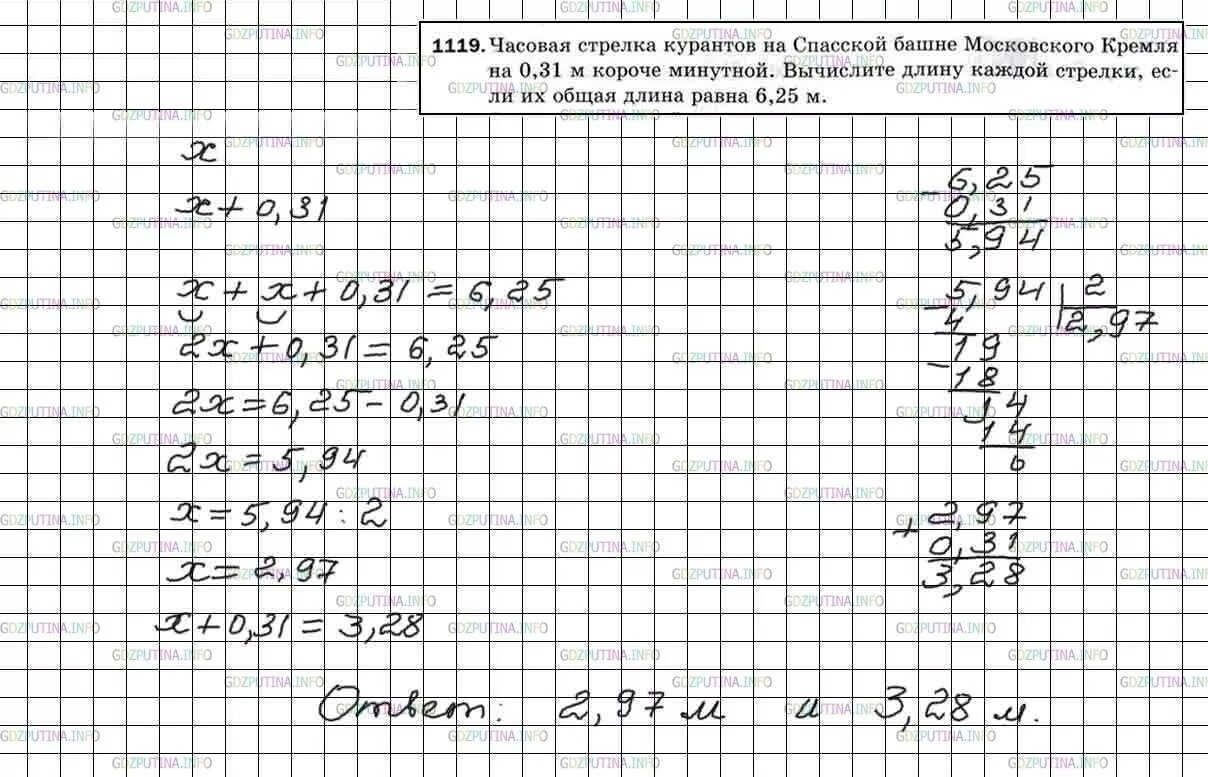 1119. Часовая стрелка курантов на Спасской башне Московского Кремля
на 0,31 м короче минутной. Вычислите длину каждой стрелки, ес-
ли их общая длина равна 6,25 м.
x
x + 0,31
x + x + 0,31 = 6,25
2x + 0,31 = 6,25
2x = 6,25 - 0,31
2x = 5,94
x = 5,94 : 2
x = 2,97
x + 0,31 = 3,28
- 6,25
0,31
5,94
- 5,94 | 2
4 2,97
19
- 18
14
14
0
+ 2,97
0,31
3,28
Ответ: 2,97 м и 3,28 м.
GDZPUTINA.INFO